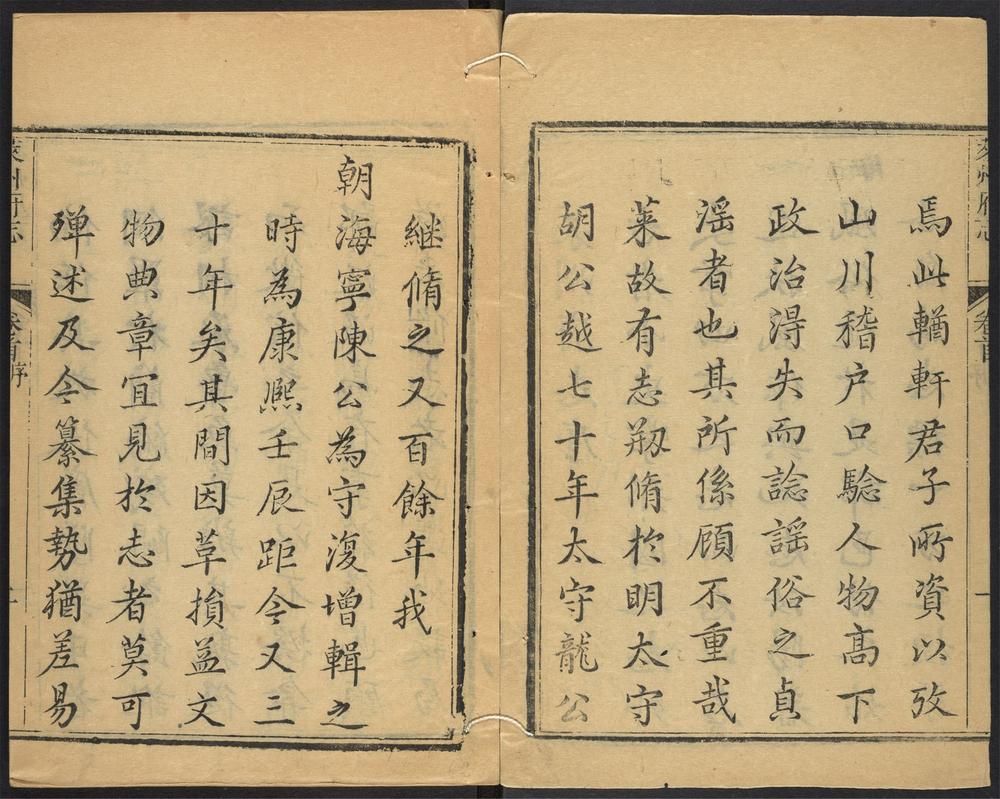 萊州府志
卷首序
焉此輶軒君子所資以攷
山川稽户口驗人物高下
政治淂失而諗謡俗之貞
滛者也其所係顧不重哉
莱故有志剏脩於明太守
胡公越七十年太守龍公
継脩之又百餘年我
朝海寧陳公為守復增輯之
時為康熈壬辰距今又三
十年矣其間因革損益文
物典章宜見於志者莫可
殫述及今纂集勢猶差易
萊州府志
卷首序